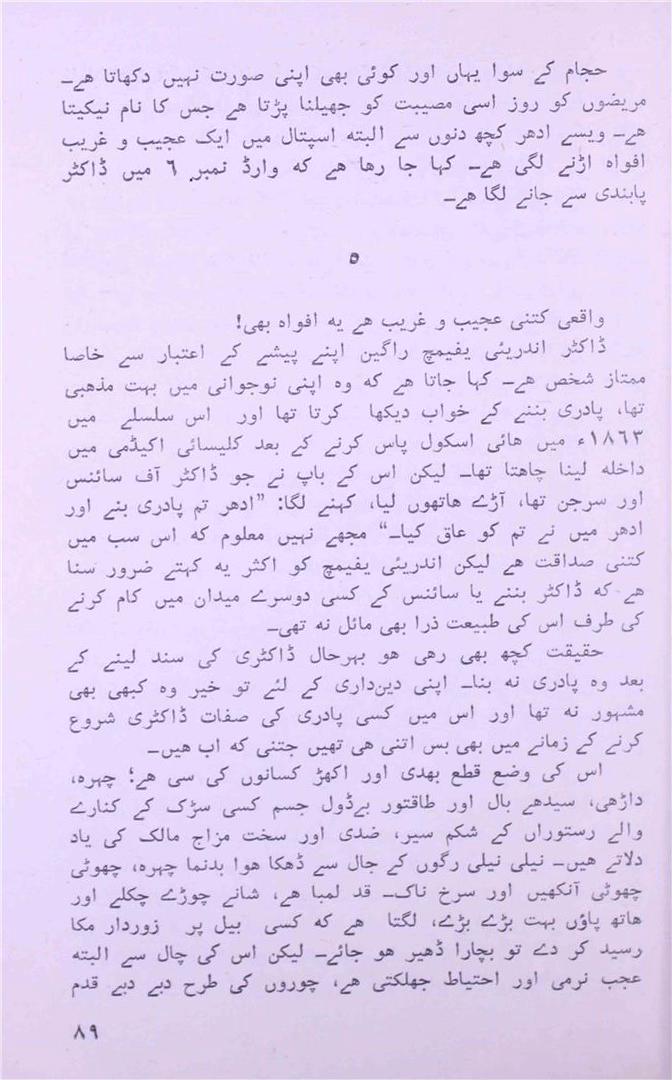 حجام کے سوا یہاں اور کوئی بھی اپنی صورت نہیں دکھاتا ھے۔
مریضوں کو روز اسی مصیبت کو جھیلنا پڑتا ھے جس کا نام نیکیتا
ھے۔ ویسے ادھر کچھ دنوں سے البتہ اسپتال میں ایک عجیب و غریب
افواہ اڑنے لگی ھے۔ کہا جا رھا ھے کہ وارڈ نمبر ٦ میں ڈاکٹر
پابندی سے جانے لگا ھے۔
٥
واقعی کتنی عجیب و غریب ھے یہ افواہ بھی!
ڈاکٹر اندریئی یفیمچ راگین اپنے پیشے کے اعتبار سے خاصا
ممتاز شخص ھے۔ کہا جاتا ھے کہ وہ اپنی نوجوانی میں بہت مذھبی
تھا، پادری بننے کے خواب دیکھا کرتا تھا اور اس سلسلے میں
١٨٦٣ء میں ھائی اسکول پاس کرنے کے بعد کلیسائی اکیڈمی میں
داخلہ لینا چاھتا تھا۔ لیکن اس کے باپ نے جو ڈاکٹر آف سائنس
اور سرجن تھا، آڑے ھاتھوں لیا، کہنے لگا: ”ادھر تم پادری بنے اور
ادھر میں نے تم کو عاق کیا۔“ مجھے نہیں معلوم کہ اس سب میں
کتنی صداقت ھے لیکن اندریئی یفیمچ کو اکثر یہ کہتے ضرور سنا
ھے کہ ڈاکٹر بننے یا سائنس کے کسی دوسرے میدان میں کام کرنے
کی طرف اس کی طبیعت ذرا بھی مائل نہ تھی۔
حقیقت کچھ بھی رھی ھو بہرحال ڈاکٹری کی سند لینے کے
بعد وہ پادری نہ بنا۔ اپنی دین‌داری کے لئے تو خیر وہ کبھی بھی
مشہور نہ تھا اور اس میں کسی پادری کی صفات ڈاکٹری شروع
کرنے کے زمانے میں بھی بس اتنی ھی تھیں جتنی کہ اب ھیں۔
اس کی وضع قطع بھدی اور اکھڑ کسانوں کی سی ھے؛ چہرہ،
داڑھی، سیدھے بال اور طاقتور بےڈول جسم کسی سڑک کے کنارے
والے رستوراں کے شکم سیر، ضدی اور سخت مزاج مالک کی یاد
دلاتے ھیں۔ نیلی نیلی رگوں کے جال سے ڈھکا ھوا بدنما چہرہ، چھوٹی
چھوٹی آنکھیں اور سرخ ناک۔ قد لمبا ھے، شانے چوڑے چکلے اور
ھاتھ پاؤں بہت بڑے بڑے، لگتا ھے کہ کسی بیل پر زوردار مکا
رسید کر دے تو بچارا ڈھیر ھو جائے۔ لیکن اس کی چال سے البتہ
عجب نرمی اور احتیاط جھلکتی ھے، چوروں کی طرح دبے دبے قدم
٨٩